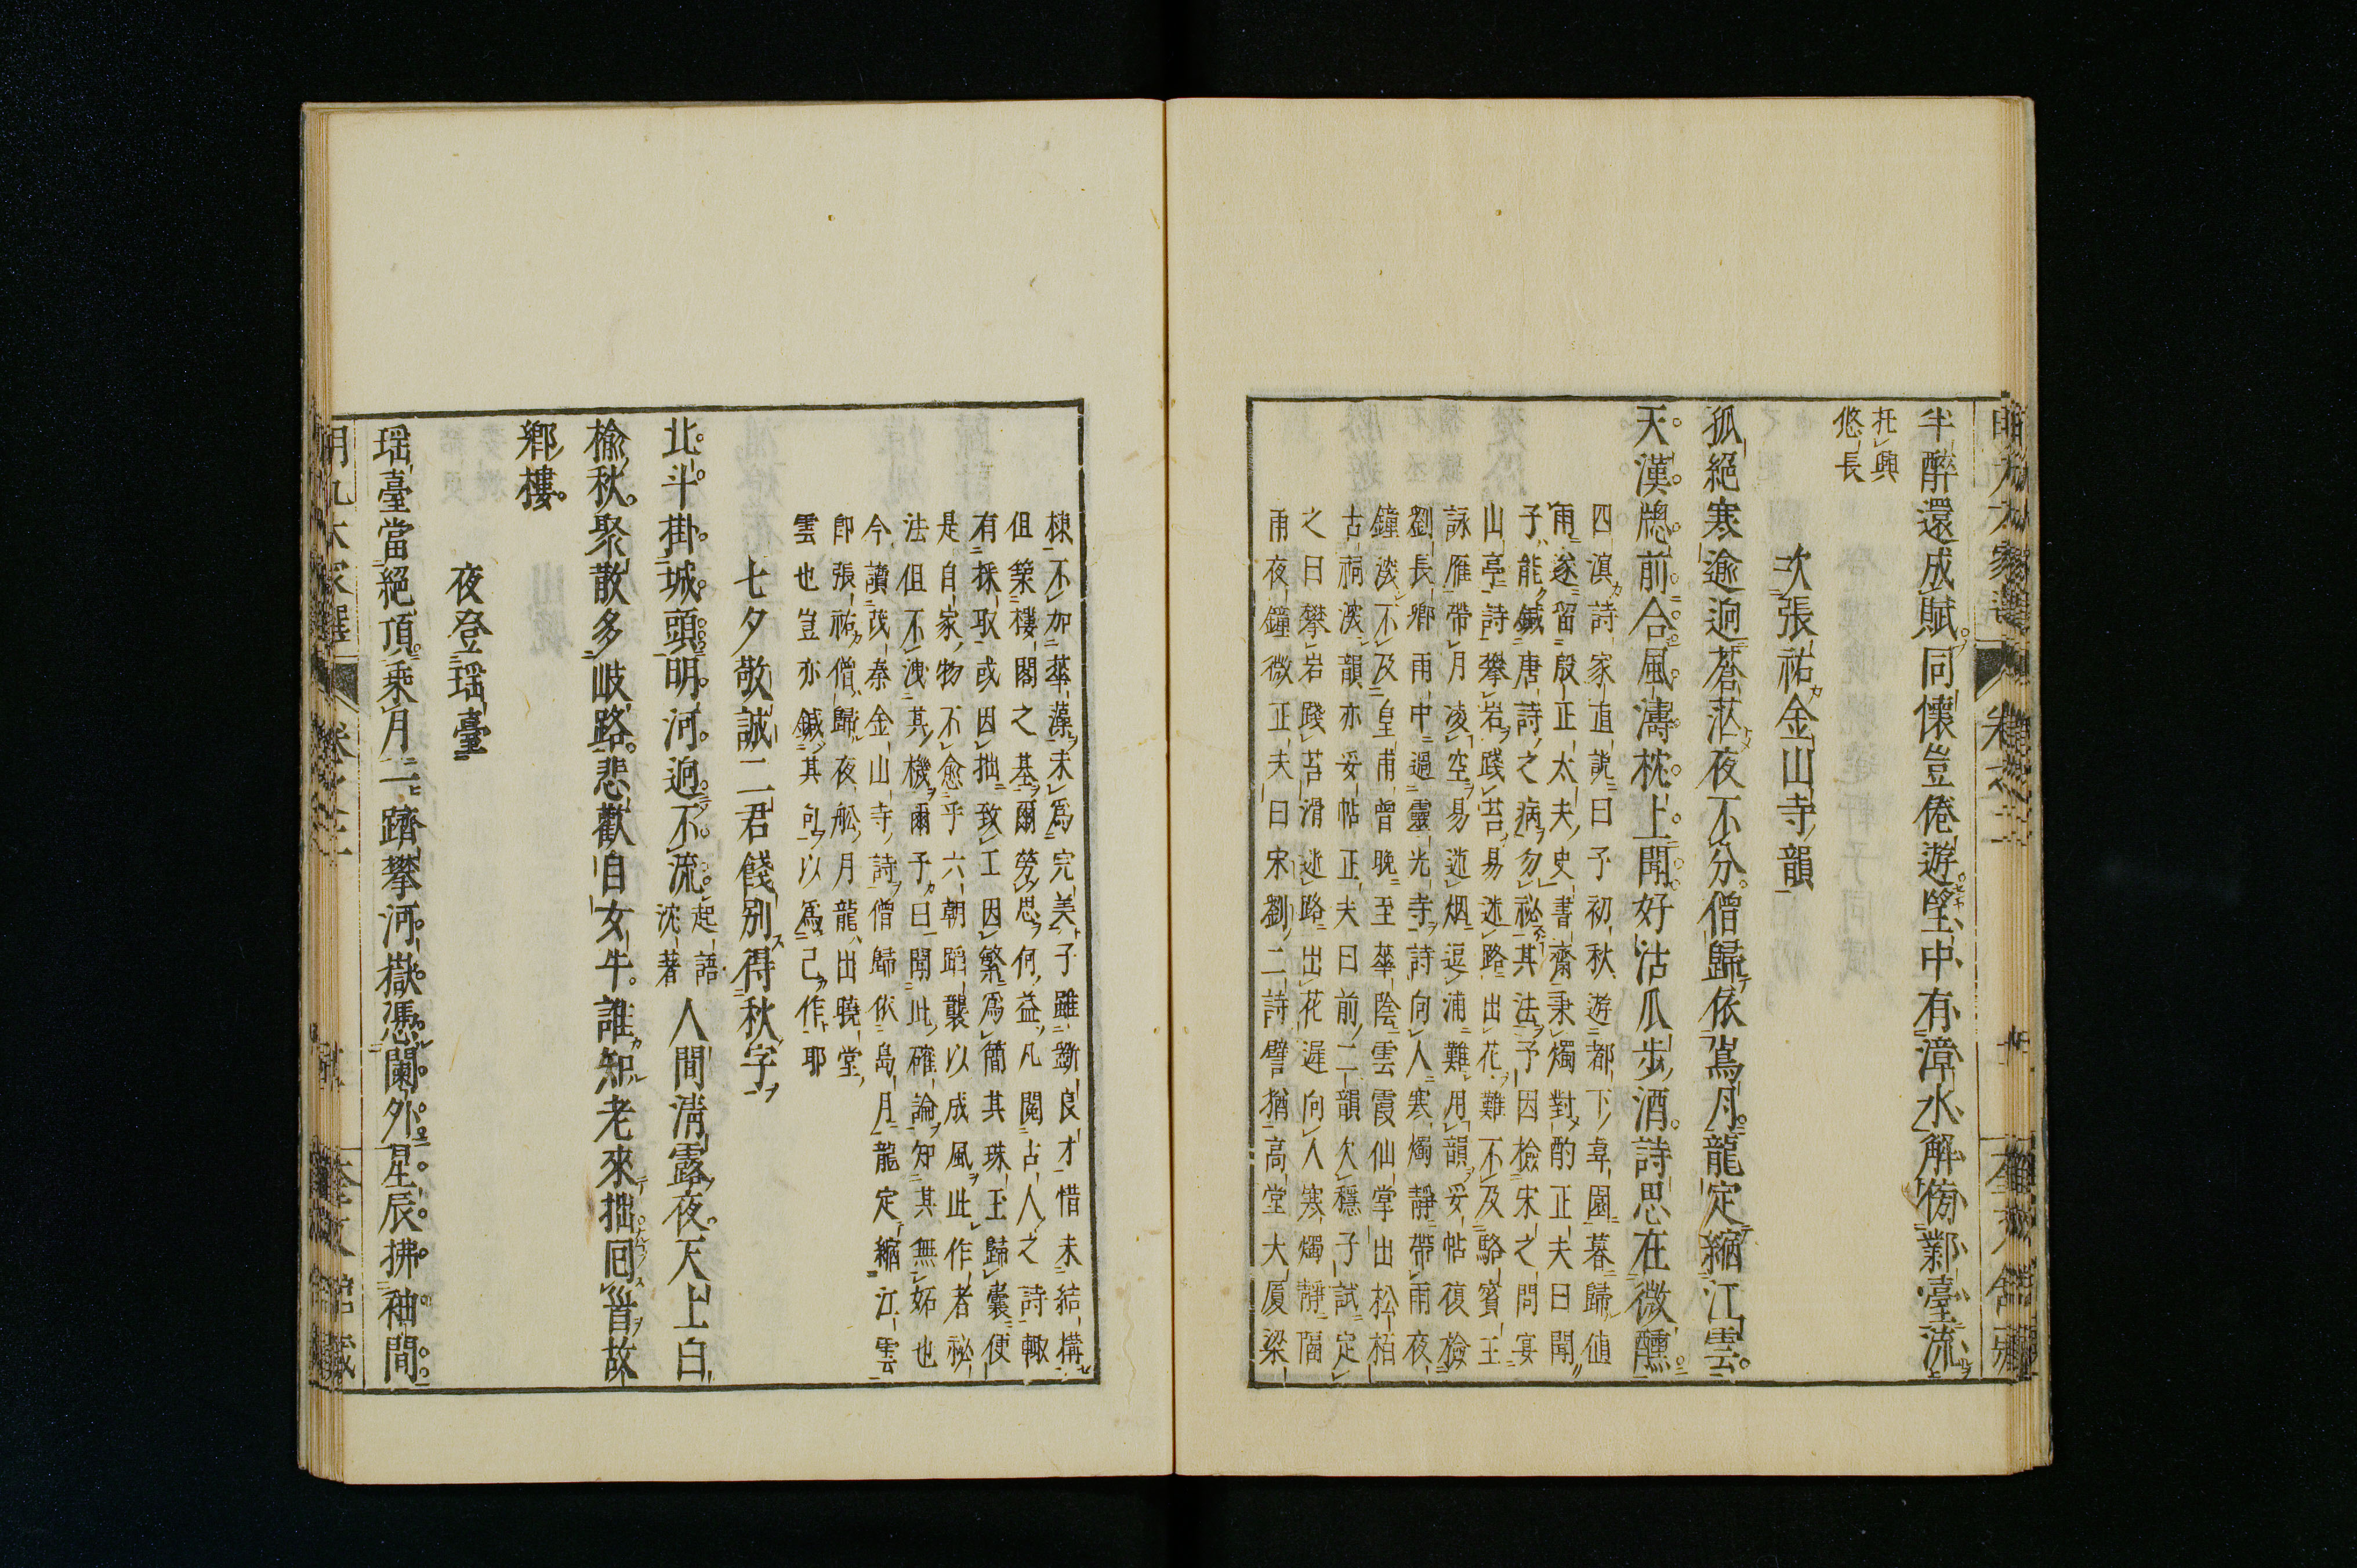 半醉還成賦同懷豈倦遊望中有漳水解傍鄴臺流
托興
悠長
次張祐金山寺韻
孤絕寒逾迥蒼茫夜不分僧歸依島月龍定縮江雲
天漢牕前合風濤枕上聞好沽瓜步酒詩思在微醺
四溟詩家直說曰予初秋遊都下韋園暮歸値
雨遂留殷正太夫史書齋秉燭對酌正夫曰聞
子能鍼唐詩之病勿祕其法予因檢宋之問宴
山亭詩攀岩踐苔易迷路出花難不及駱賓王
詠雁帶月凌空易迷烟逗浦難用韻妥帖復檢
劉長鄉雨中過靈光寺詩向人寒燭靜帶雨夜
鐘淡不及皇甫曾晚至華陰雲霞仙掌出松栢
古祠淡韻亦妥帖正夫曰前二韻欠穩子試定
之曰攀岩踐苔滑迷路出花遲向人寒燭靜隔
雨夜鐘微正夫曰宋劉二詩譬猶高堂大厦梁
棟不加華藻未爲完美子雖斲良才惜未結構
但築樓閣之基爾勞思何益凡閱古人之詩輙
有採取或因拙致工因繁爲簡其珠玉歸囊便
是自家物不愈乎六朝蹈襲以成風此作者祕
法但不洩其機爾予曰聞此確論知其無妬也
今讀茂秦金山寺詩僧歸依島月龍定縮江雲
卽張祐僧歸夜舩月龍出曉堂
雲也豈亦鍼其句以爲己作耶
七夕敬誠二君餞別得秋字
北斗掛城頭明河迥不流起語
沈著人間淸露夜天上白
楡秋聚散多岐路悲歡自女牛誰知老來拙回首故
鄉樓
夜登瑶臺
瑶臺當絕頂乘月一躋攀河嶽憑闌外星辰拂袖間